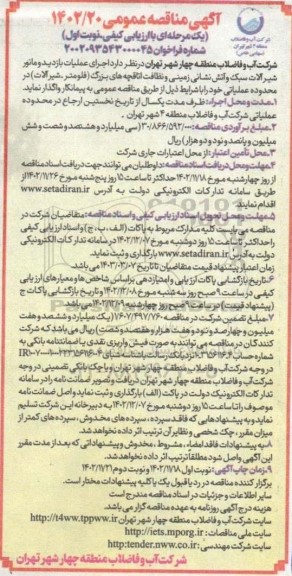 شرکت آب و فاضلاب
منطقه ۴ شهر تهران
(سهامی خاص)
آگهی مناقصه عمومی ۱۴۰۲/۲۰
(یک مرحله‌ای با ارزیابی کیفی-نوبت اول)
شماره فراخوان ۲۰۰۲۰۹۳۵۴۳۰۰۰۰۴۵
شرکت آب و فاضلاب منطقه چهار شهر تهران در نظر دارد اجرای عملیات بازدید و مانور
شیرآلات سبک و آتش نشانی زمینی و نظافت اتاقچه های بزرگ (فلومتر، شیرآلات) در
محدوده عملیاتی خود را با شرایط ذیل از طریق مناقصه عمومی به پیمانکار واگذار نماید.
۱.مدت و محل اجراء: ظرف مدت یکسال از تاریخ نخستین ارجاع در محدوده
عملیاتی شرکت آب و فاضلاب منطقه ۴ شهر تهران.
۲.مبلغ برآوردی مناقصه: ۳۰/۸۶۶/۵۹۲/۰۰۰ (سی میلیارد و هشتصد و شصت و شش
میلیون و پانصد و نود و دو هزار) ریال
۳.محل تأمین اعتبار: از محل اعتبارات جاری شرکت
۴.مهلت و محل دریافت اسناد مناقصه: داوطلبان می توانند جهت دریافت اسناد مناقصه
از روز چهارشنبه مورخ ۱۴۰۲/۱۱/۱۸ حداکثر تا ساعت ۱۵ روز پنج شنبه مورخ ۱۴۰۲/۱۱/۲۶ از
طریق سامانه تدارکات الکترونیکی دولت به آدرس www.setadiran.ir
اقدام نمایند
۵.مهلت و محل تحویل اسناد ارزیابی کیفی و اسناد مناقصه: متقاضیان شرکت در
مناقصه می بایست کلیه مدارک مربوط به پاکات (الف، ب، ج) و اسناد ارزیابی کیفی
را حداکثر تا ساعت ۱۵ روز دوشنبه مورخ ۱۴۰۲/۱۲/۰۷ در سامانه تدارکات الکترونیکی
دولت به آدرس www.setadiran.ir بارگذاری و ثبت نمایند.
زمان اعتبار پیشنهاد قیمت متقاضیان تا تاریخ ۱۴۰۳/۰۳/۰۷ می باشد.
۶.تاریخ بازگشایی پاکات: ارزیابی و امتیازدهی بر اساس شاخص ها و معیارهای ارزیابی
کیفی در ساعت ۹ صبح روز سه شنبه مورخ ۱۴۰۲/۱۲/۰۸ و تاریخ بازگشایی پاکات ج
(پیشنهاد قیمت) در ساعت ۹ صبح روز چهارشنبه مورخ ۱۴۰۲/۱۲/۰۹ می باشد.
۷.مبلغ تضمین شرکت در مناقصه ۱/۶۰۷/۴۹۷/۷۶۰ (یک میلیارد و ششصد و هفت
میلیون و چهارصد و نود و هفت هزار و هفتصد و شصت) ریال می باشد که شرکت
کنندگان در مناقصه می توانند به صورت فیش واریزی نقدی یا ضمانتنامه بانکی به
در وجه شرکت آب و فاضلاب منطقه چهار شهر تهران و یا چک بانکی تضمینی در وجه
شرکت آب و فاضلاب منطقه چهار شهر تهران دریافت و تصویر ضمانت نامه را در سامانه
تدارکات الکترونیک دولت در پاکت (الف) بارگذاری و ثبت نماید و اصل ضمانت نامه
موصوف را تا ساعت ۱۵ روز دوشنبه مورخ ۱۴۰۲/۱۲/۰۷ به دبیرخانه این شرکت تسلیم
نماید و به پیشنهادهایی که فاقد سپرده، سپرده های مخدوش، سپرده های کمتر از
میزان مقرر، چک شخصی و نظایر آن ترتیب اثر داده نخواهد شد.
۸.به پیشنهادات فاقد امضاء، مشروط، مخدوش و پیشنهاداتی که بعد از مدت مقرر
در این آگهی واصل شود مطلقا ترتیب اثر داده نخواهد شد.
۹.زمان چاپ آگهی: نوبت اول ۱۴۰۲/۱۱/۱۸ و نوبت دوم ۱۴۰۲/۱۱/۲۱
برگزار کننده مناقصه در رد یا قبول یک یا کلیه پیشنهادات مختار است.
سایر اطلاعات و جزئیات در اسناد مناقصه مندرج است
هزینه درج آگهی روزنامه به عهده مناقصه گزار می باشد.
سایت شرکت آب و فاضلاب منطقه چهار شهر تهران http://t4ww.tppww.ir
سایت ملی مناقصات: http://iets.mporg.ir
سایت شرکت مهندسی: http:tender.nww.co.ir
شرکت آب و فاضلاب منطقه چهار شهر تهران